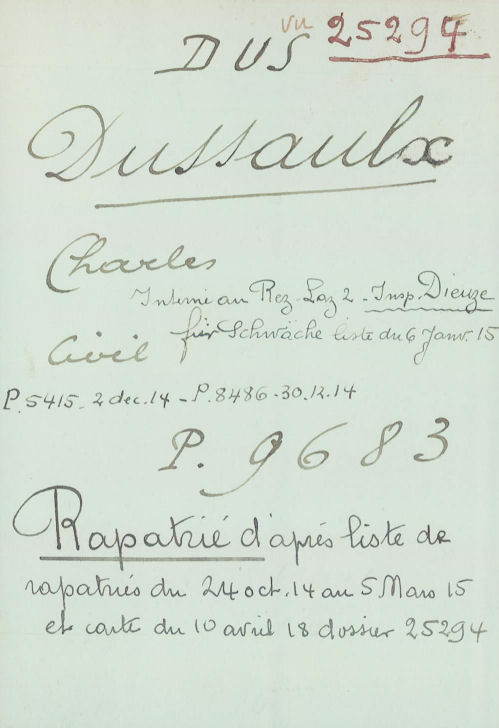 vu 25294
DUS
Dussaulx
Charles
Interné au Rez-Laz 2 - Insp. Dieuze
für Schwäche liste du 6 Janv. 15
Civil
P.5415 - 2 dec.14 - P.8486 - 30.12.14
P. 9683
Rapatrié d'après liste de
rapatriés du 24 oct.14 au 5 Mars 15
et carte du 10 avril 18 dossier 25294